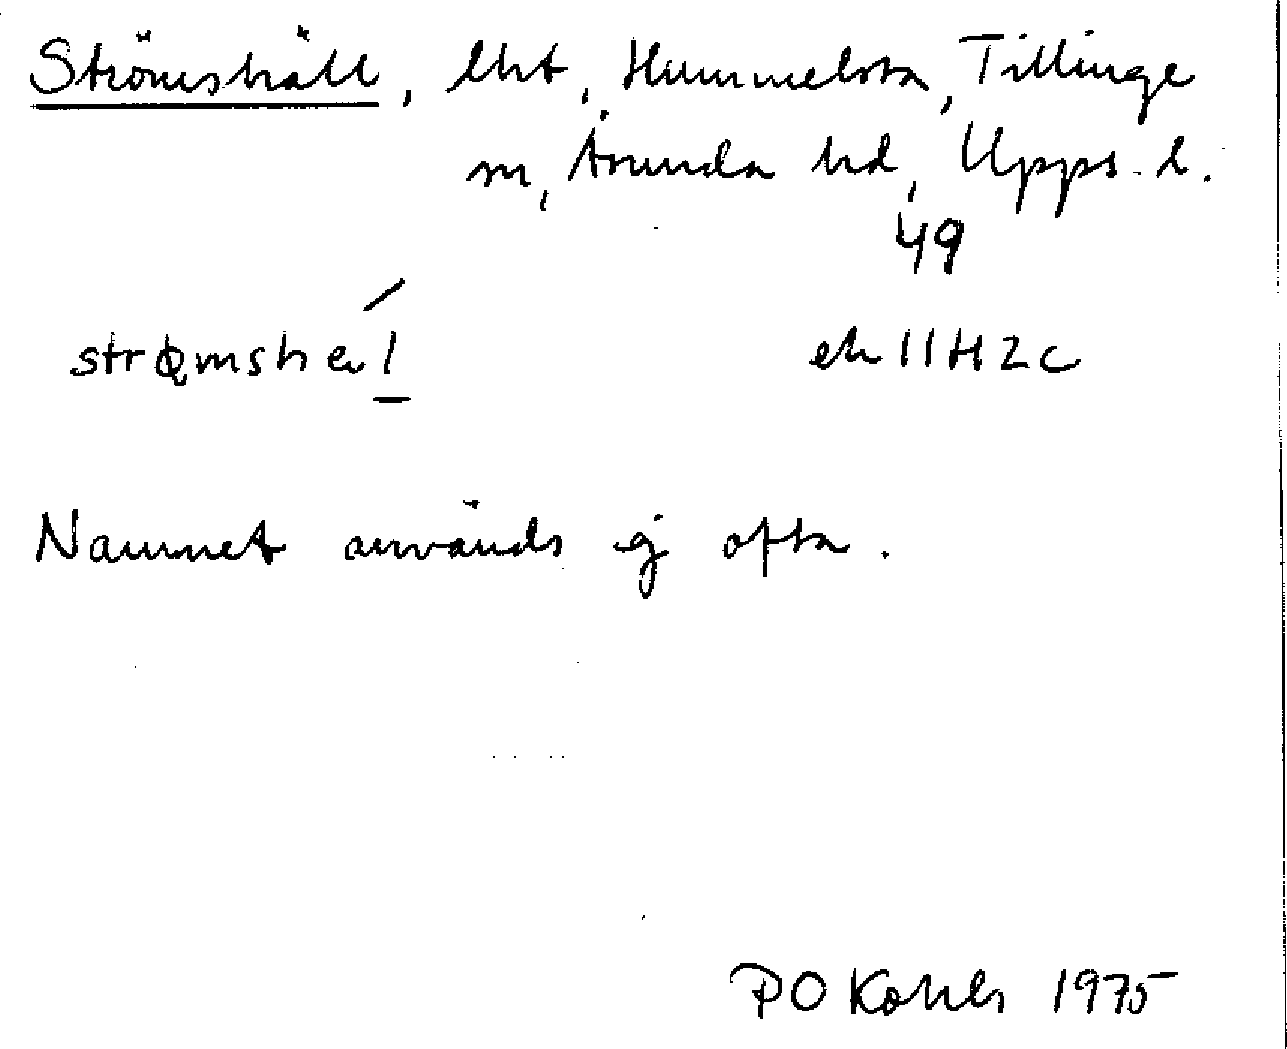 Strömshäll, lht, Hummelsta, Tillinge
sn, Åsunda hd, Upps. l.
49
strømshɛ́l ek 11H2c
Namnet används ej ofta.
P O 1975